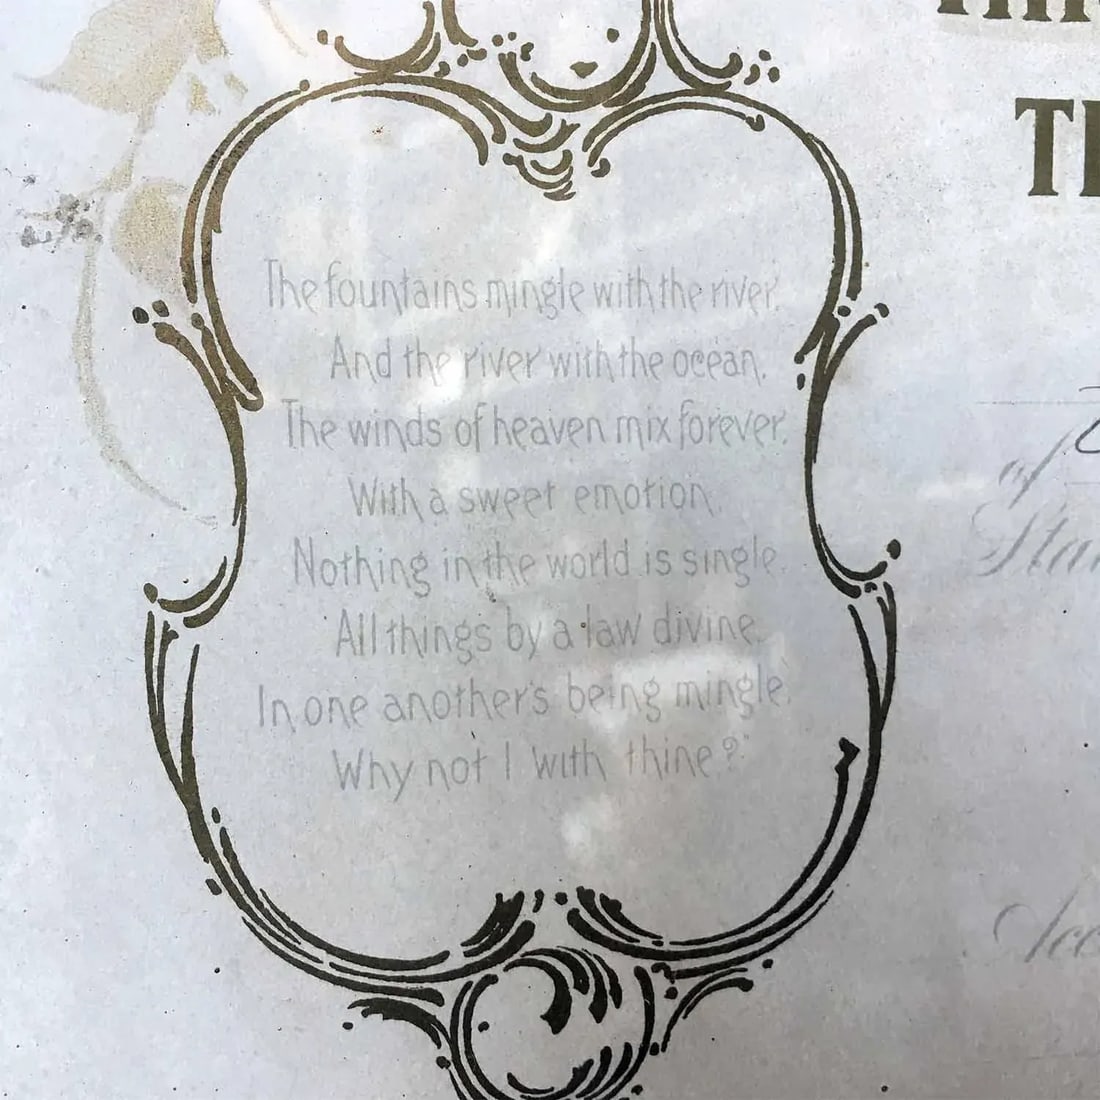 The fountains mingle with the river.
And the river with the ocean.
The winds of heaven mix forever.
With a sweet emotion.
Nothing in the world is single.
All things by a law divine.
In one another's being mingle.
Why not I with thine?"
of